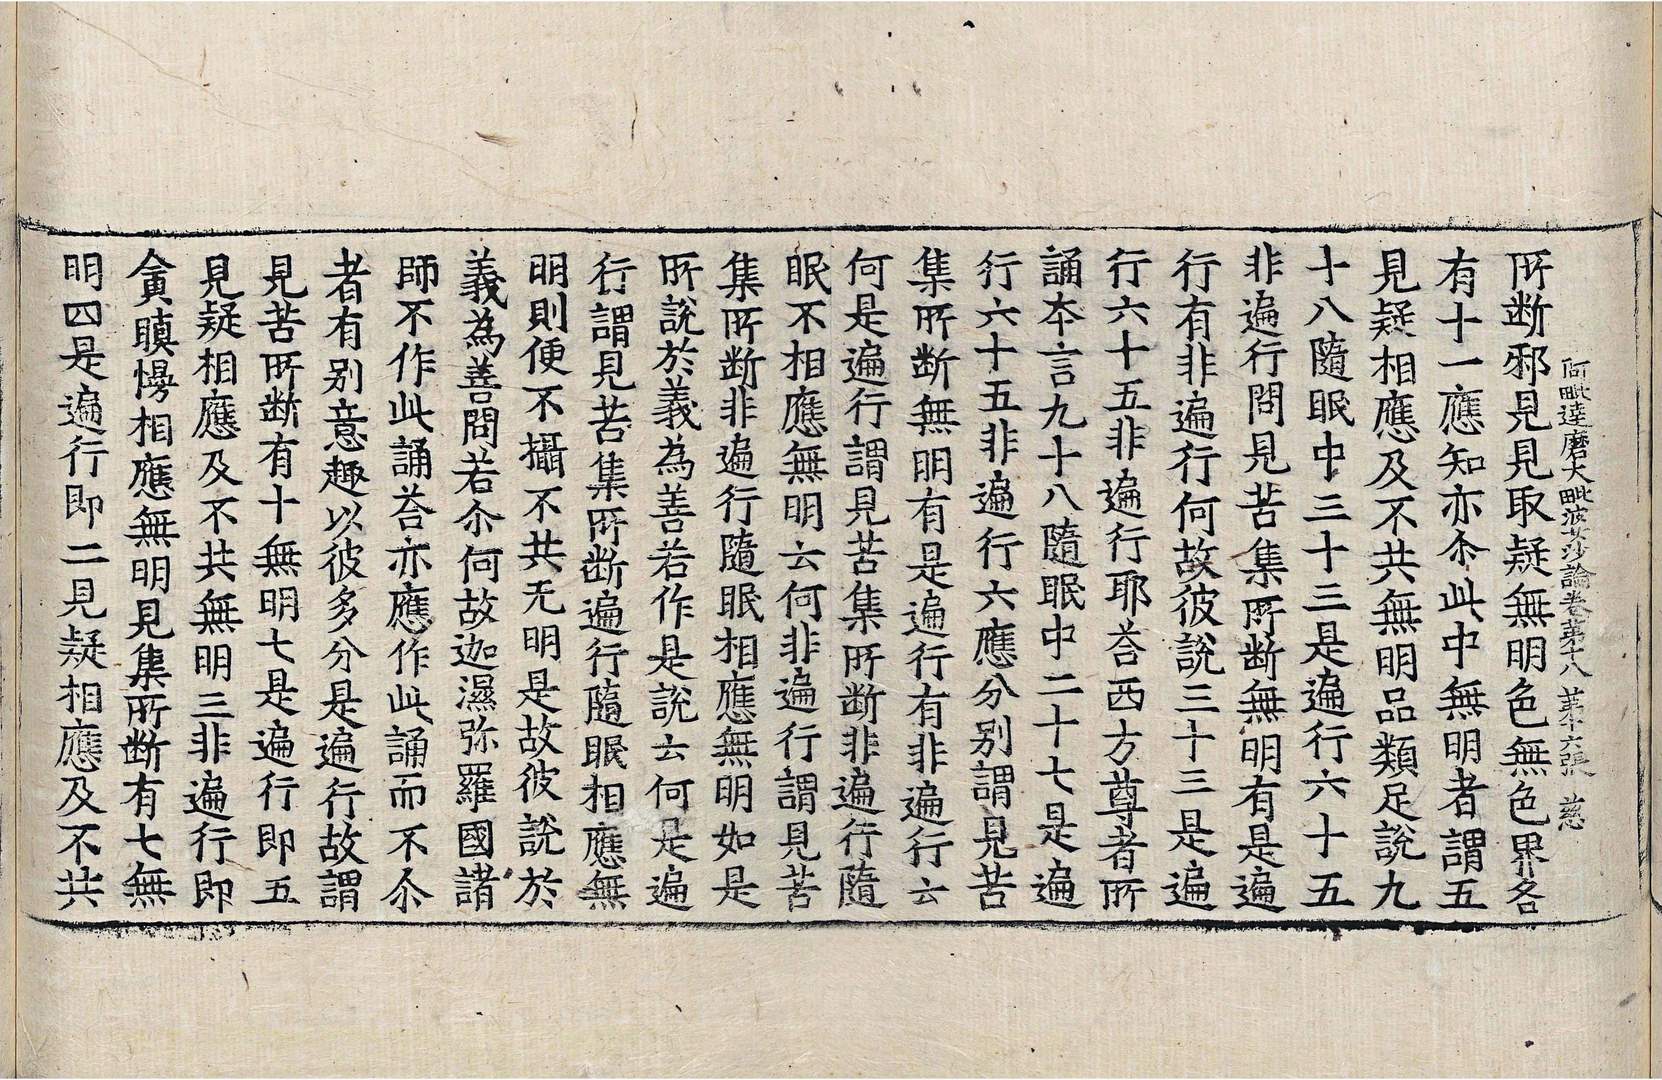 阿毗達磨大毗波娑沙論卷第十八 第十六張 慈
所斷邪見見取疑無明色無色界各
有十一應知亦尒此中無明者謂五
見疑相應及不共無明品類足說九
十八隨眠中三十三是遍行六十五
非遍行問見苦集所斷無明有是遍
行有非遍行何故彼說三十三是遍
行六十五非遍行耶荅西方尊者所
誦本言九十八隨眠中二十七是遍
行六十五非遍行六應分別謂見苦
集所斷無明有是遍行有非遍行云
何是遍行謂見苦集所斷非遍行隨
眠不相應無明云何非遍行謂見苦
集所斷非遍行隨眠相應無明如是
所說於義為善若作是說云何是遍
行謂見苦集所斷遍行隨眠相應無
明則便不攝不共无明是故彼說於
義為善問若尒何故迦濕弥羅國諸
師不作此誦荅亦應作此誦而不尒
者有別意趣以彼多分是遍行故謂
見苦所斷有十無明七是遍行即五
見疑相應及不共無明三非遍行即
貪瞋慢相應無明見集所斷有七無
明四是遍行即二見疑相應及不共